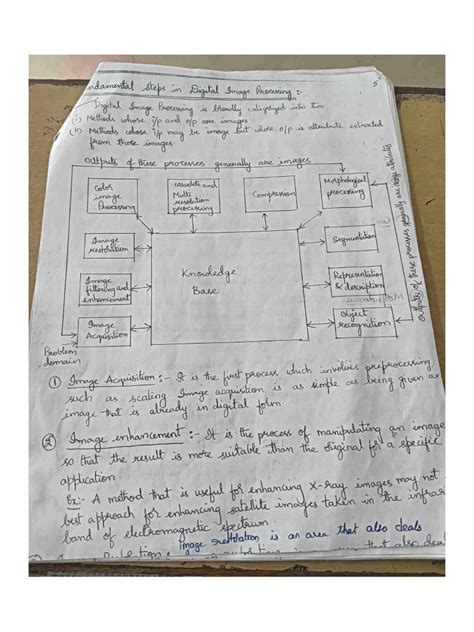 ndamental steps in Digital Image Processing :-
5
Digital Image Processing is broadly categorized into two
(i) Methods whose i/p and o/p are images
(ii) Methods whose i/p may be image but whose o/p is attribute extracted
from those images
outputs of these processes generally are images
Color
image
Processing
wavelets and
Multi
resolution
processing
Compression
Morphological
processing
Image
restoration
Image
filtering and
enhancement
Image
Acquisition
Knowledge
Base
Segmentation
Representation
& description
Object
recognition
outputs of these processes generally are
Problem
domain
① Image Acquisition :- It is the first process which involves preprocessing
such as scaling Image acquisition is as simple as being given an
image that is already in digital form
② Image enhancement :- It is the process of manipulating an image
so that the result is more suitable than the original for a specific
application.
Ex:- A method that is useful for enhancing X-ray images may not
best approach for enhancing satellite images taken in the infrar
band of electromagnetic spectrum.
image restoration is an area that also deals
that also deal